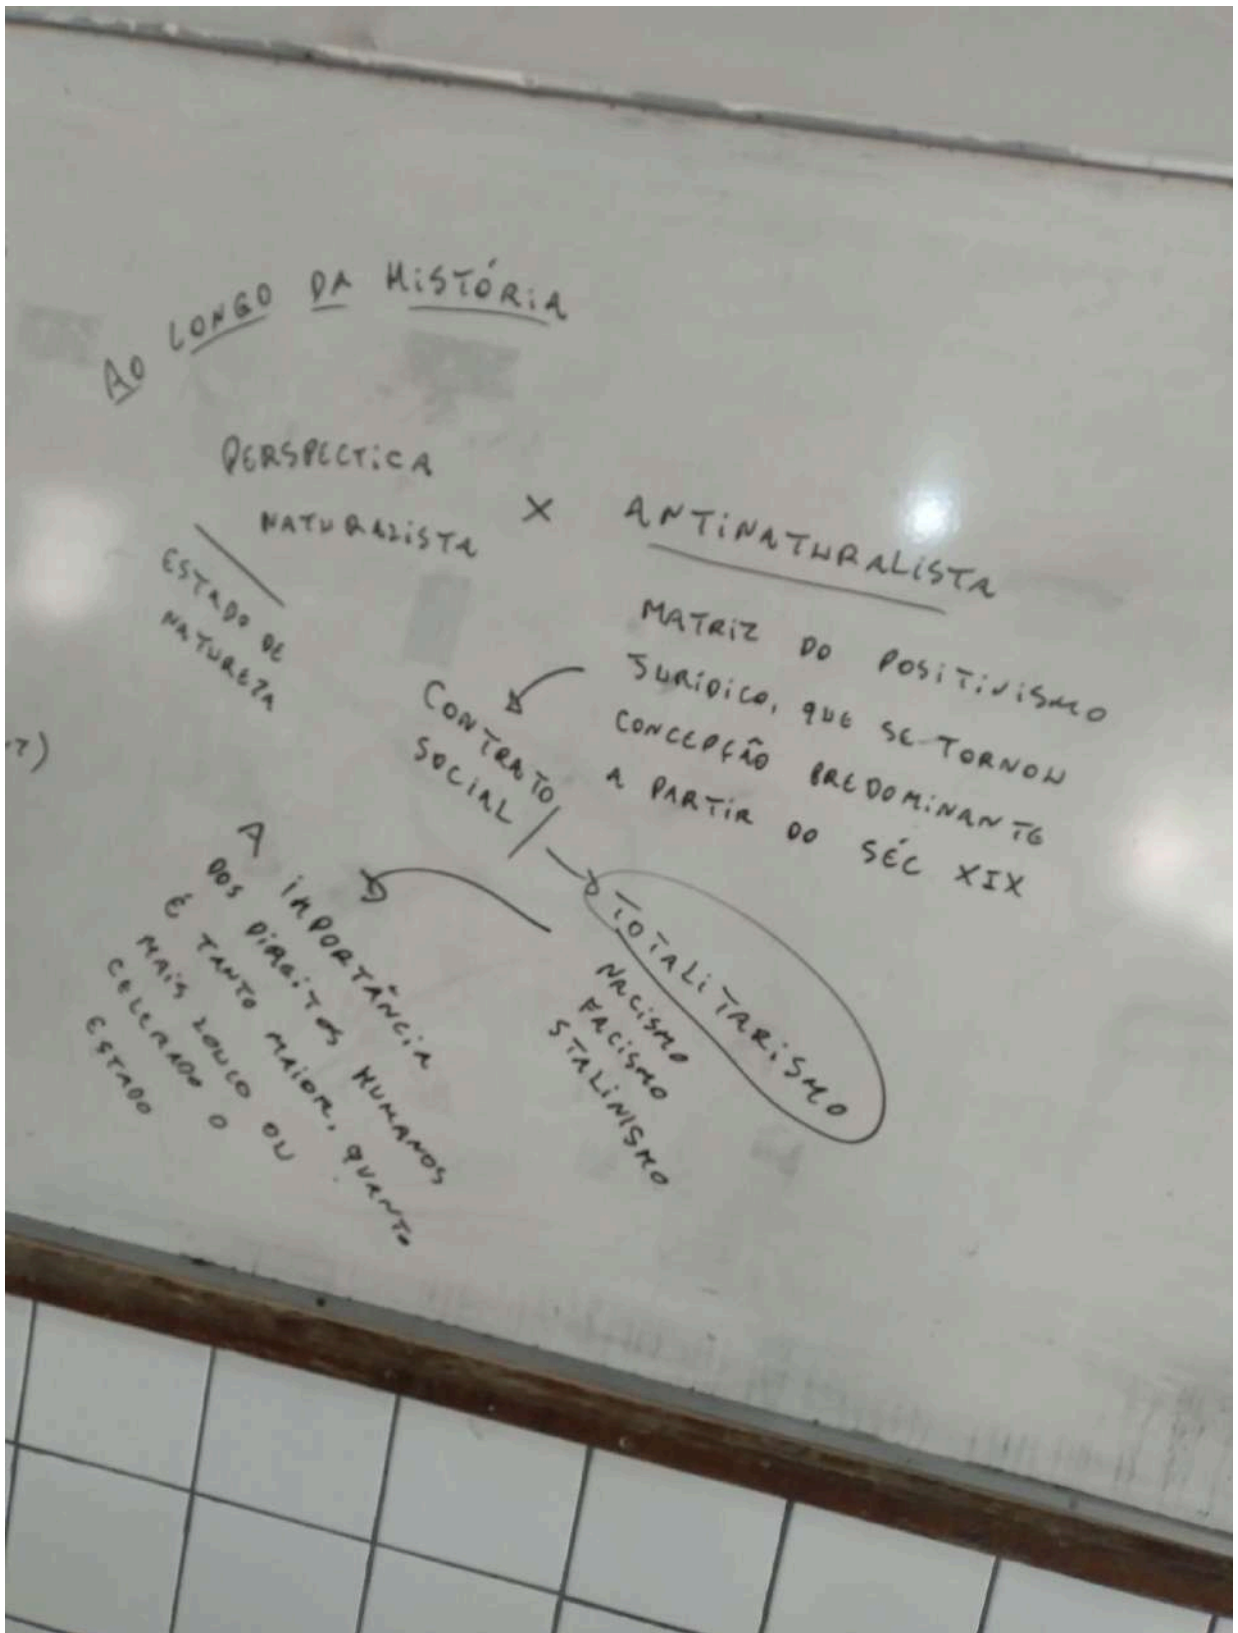 AO LONGO DA HISTÓRIA
PERSPECTICA
NATURALISTA
X
ANTINATURALISTA
ESTADO DE
NATUREZA
MATRIZ DO POSITIVISMO
JURÍDICO, QUE SE TORNOU
CONCEPÇÃO PREDOMINANTE
A PARTIR DO SÉC XIX
CONTRATO
SOCIAL
TOTALITARISMO
NACISMO
FACISMO
STALINISMO
A IMPORTÂNCIA
DOS DIREITOS HUMANOS
É TANTO MAIOR, QUANTO
MAIS LOUCO OU
CELERADO O
ESTADO